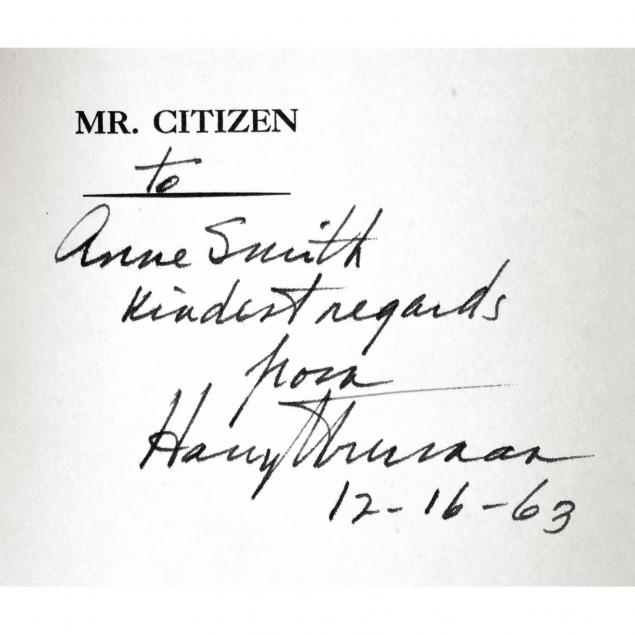 MR. CITIZEN
to
Anne Smith
Kindest regards
from
Harry Truman
12-16-63